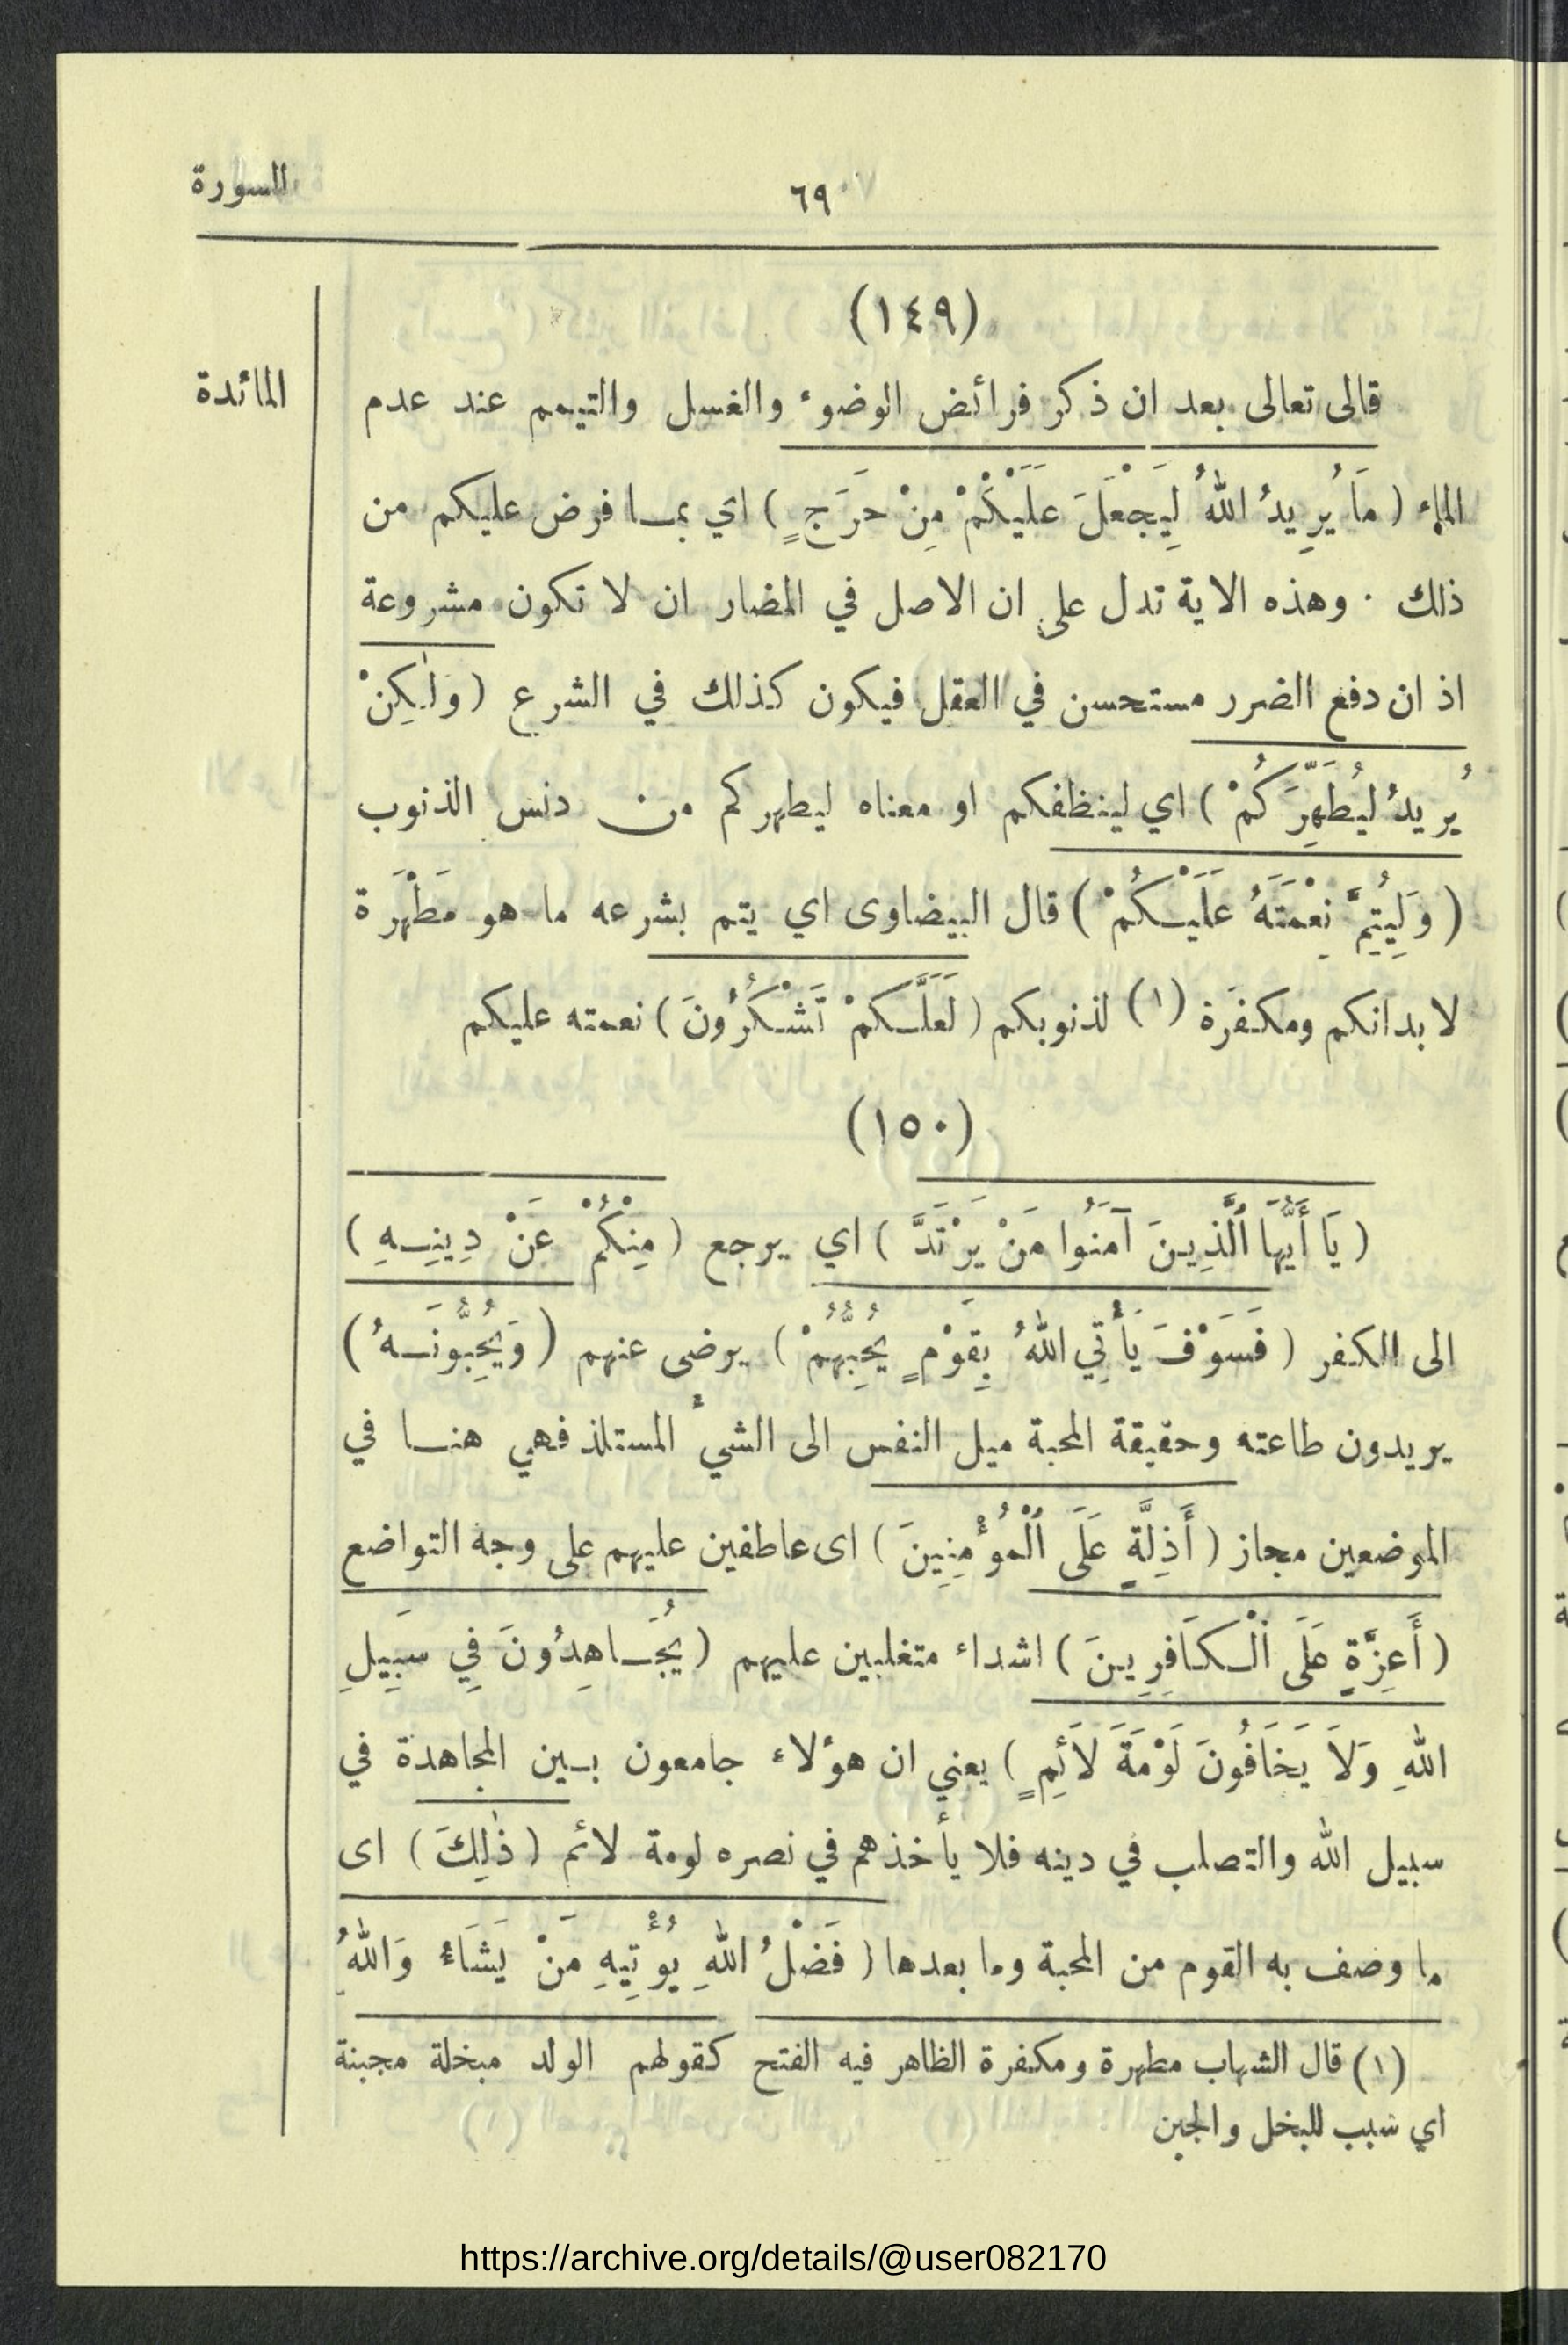 السورة
٦٩
(١٤٩)
المائدة
قالى تعالى بعد ان ذكر فرائض الوضوء والغسل والتيمم عند عدم
الماء ( مَا يُرِيدُ اللهُ لِيَجْعَلَ عَلَيْكُمْ مِنْ حَرَجٍ ) اي بمـا فرض عليكم من
ذلك . وهذه الاية تدل على ان الاصل في المضار ان لا تكون مشروعة
اذ ان دفع الضرر مستحسن في العقل فيكون كذلك في الشرع ( ولٰكِنْ
يُريدُ ليُطَهِّرَكُمْ ) اي لينظفكم او معناه ليطهركم من دنس الذنوب
( وَلِيُتِمَّ نِعْمَتَهُ عَلَيْكُمْ ) قال البيضاوى اي يتم بشرعه ما هو مَطْهَرَة
لابدانكم ومكفَرة (١) لذنوبكم ( لَعَلَّكمْ تَشْكُرُونَ ) نعمته عليكم
(١٥٠)
( يَا أَيُّهَا ٱلَّذِينَ آمَنُوا مَنْ يَرْتَدَّ ) اي يرجع ( مِنْكُمْ عَنْ دِينِهِ )
الى الكفر ( فَسَوْفَ يَأْتِي اللهُ بِقَوْمٍ يُحِبُّهُمْ ) يرضى عنهم ( وَيُحِبُّونَهُ )
يريدون طاعته وحقيقة المحبة ميل النفس الى الشيء المستلذ فهي هنا في
الموضعين مجاز ( أَذِلَّةٍ عَلَى ٱلْمُؤْمِنِينَ ) اى عاطفين عليهم على وجه التواضع
( أَعِزَّةٍ عَلَى ٱلْكَافِرِينَ ) اشداء متغلبين عليهم ( يُجَاهِدُونَ فِي سَبِيلِ
اللهِ وَلاَ يَخَافُونَ لَوْمَةَ لاَئِمٍ ) يعني ان هؤلاء جامعون بين المجاهدة في
سبيل الله والتصلب في دينه فلا يأخذهم في نصره لومة لائم ( ذٰلِكَ ) اى
ما وصف به القوم من المحبة وما بعدها ( فَضْلُ اللهِ يُؤْتِيهِ مَنْ يَشَاءُ وَاللهُ
(١) قال الشهاب مطهرة ومكفرة الظاهر فيه الفتح كقولهم الولد مبخلة مجبنة
اي سبب للبخل والجبن
https://archive.org/details/@user082170